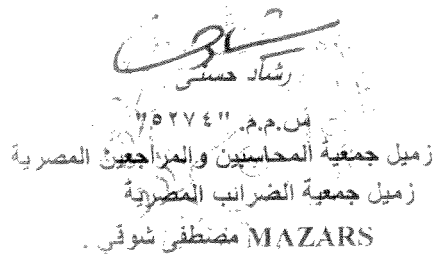 رشاد حسنى
س.م.م. "٥٢٧٤"
زميل جمعية المحاسبين والمراجعين المصرية
زميل جمعية الضرائب المصرية
MAZARS مصطفى شوقي .